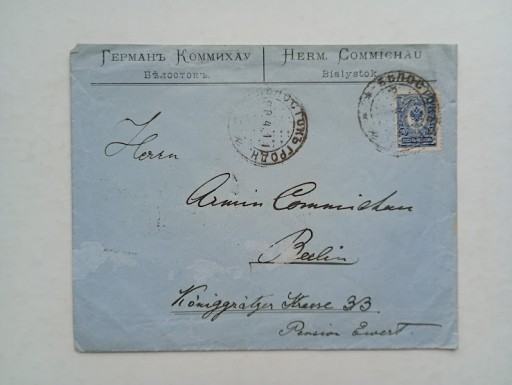 Германъ Коммихау
Бѣлостокъ.
Herm. Commichau
Bialystok.
БѢЛОСТОКЪ ГРОДН
4.11
БѢЛОСТОКЪ
Herrn
Armin Commichau
Berlin
Königgrätzer Strasse 33
Pension Ewert.